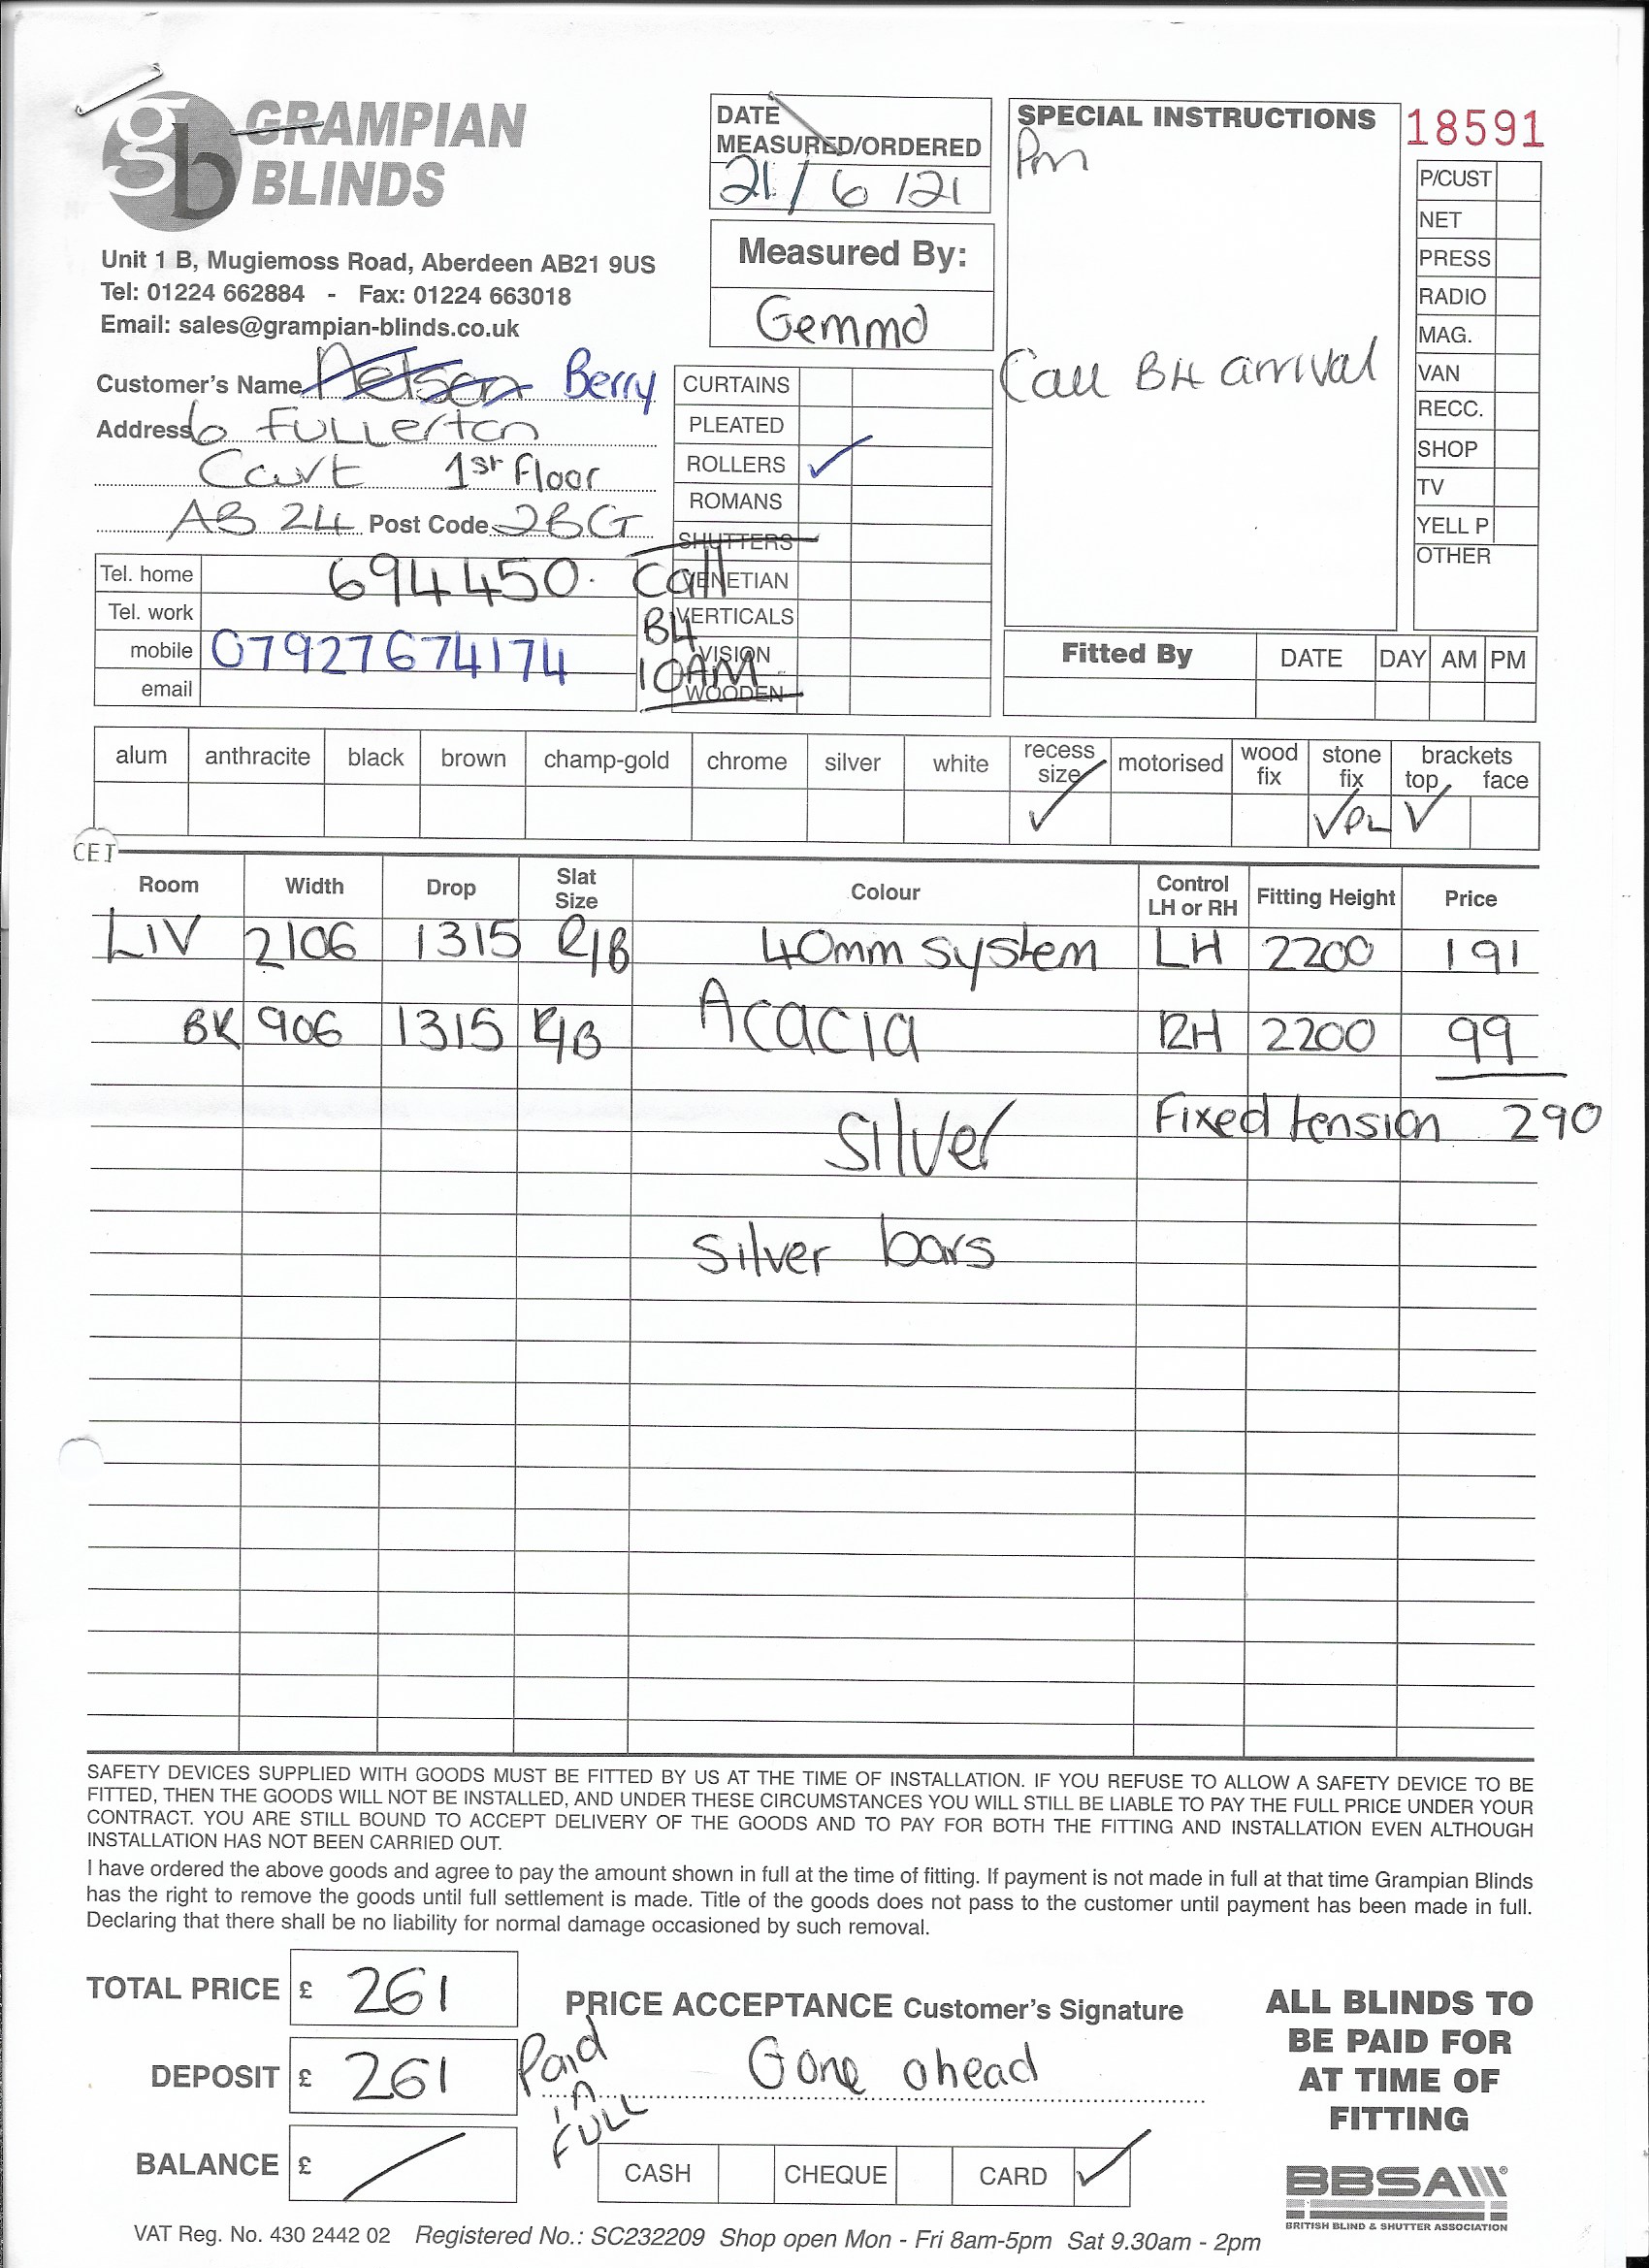 GRAMPIAN
BLINDS
gb
Unit 1 B, Mugiemoss Road, Aberdeen AB21 9US
Tel: 01224 662884 - Fax: 01224 663018
Email: sales@grampian-blinds.co.uk
DATE
MEASURED/ORDERED
21/6/21
Measured By:
Gemma
SPECIAL INSTRUCTIONS
Pm
Call B4 arrival
18591
P/CUST
NET
PRESS
RADIO
MAG.
VAN
RECC.
SHOP
TV
YELL P
OTHER
Customer's Name Nelson Berry
Address 6 Fullerton
Court 1st Floor
AB 24 Post Code 2BG
Tel. home 694450.
Tel. work
mobile 07927674174
email
Call
B4
10AM
CURTAINS
PLEATED
ROLLERS ✓
ROMANS
SHUTTERS
VENETIAN
VERTICALS
VISION
WOODEN
Fitted By DATE DAY AM PM
alum anthracite black brown champ-gold chrome silver white recess size motorised wood fix stone fix brackets top face
✓ ✓ PL ✓
CET
Room Width Drop Slat Size Colour Control LH or RH Fitting Height Price
LIV 2106 1315 R/B 40mm system LH 2200 191
BK 906 1315 R/B Acacia RH 2200 99
Silver Fixed tension 290
Silver bars
SAFETY DEVICES SUPPLIED WITH GOODS MUST BE FITTED BY US AT THE TIME OF INSTALLATION. IF YOU REFUSE TO ALLOW A SAFETY DEVICE TO BE
FITTED, THEN THE GOODS WILL NOT BE INSTALLED, AND UNDER THESE CIRCUMSTANCES YOU WILL STILL BE LIABLE TO PAY THE FULL PRICE UNDER YOUR
CONTRACT. YOU ARE STILL BOUND TO ACCEPT DELIVERY OF THE GOODS AND TO PAY FOR BOTH THE FITTING AND INSTALLATION EVEN ALTHOUGH
INSTALLATION HAS NOT BEEN CARRIED OUT.
I have ordered the above goods and agree to pay the amount shown in full at the time of fitting. If payment is not made in full at that time Grampian Blinds
has the right to remove the goods until full settlement is made. Title of the goods does not pass to the customer until payment has been made in full.
Declaring that there shall be no liability for normal damage occasioned by such removal.
TOTAL PRICE £ 261
DEPOSIT £ 261
BALANCE £ /
Paid
in
FULL
PRICE ACCEPTANCE Customer's Signature
Gone ahead
CASH CHEQUE CARD ✓
ALL BLINDS TO
BE PAID FOR
AT TIME OF
FITTING
BBSA
BRITISH BLIND & SHUTTER ASSOCIATION
VAT Reg. No. 430 2442 02 Registered No.: SC232209 Shop open Mon - Fri 8am-5pm Sat 9.30am - 2pm